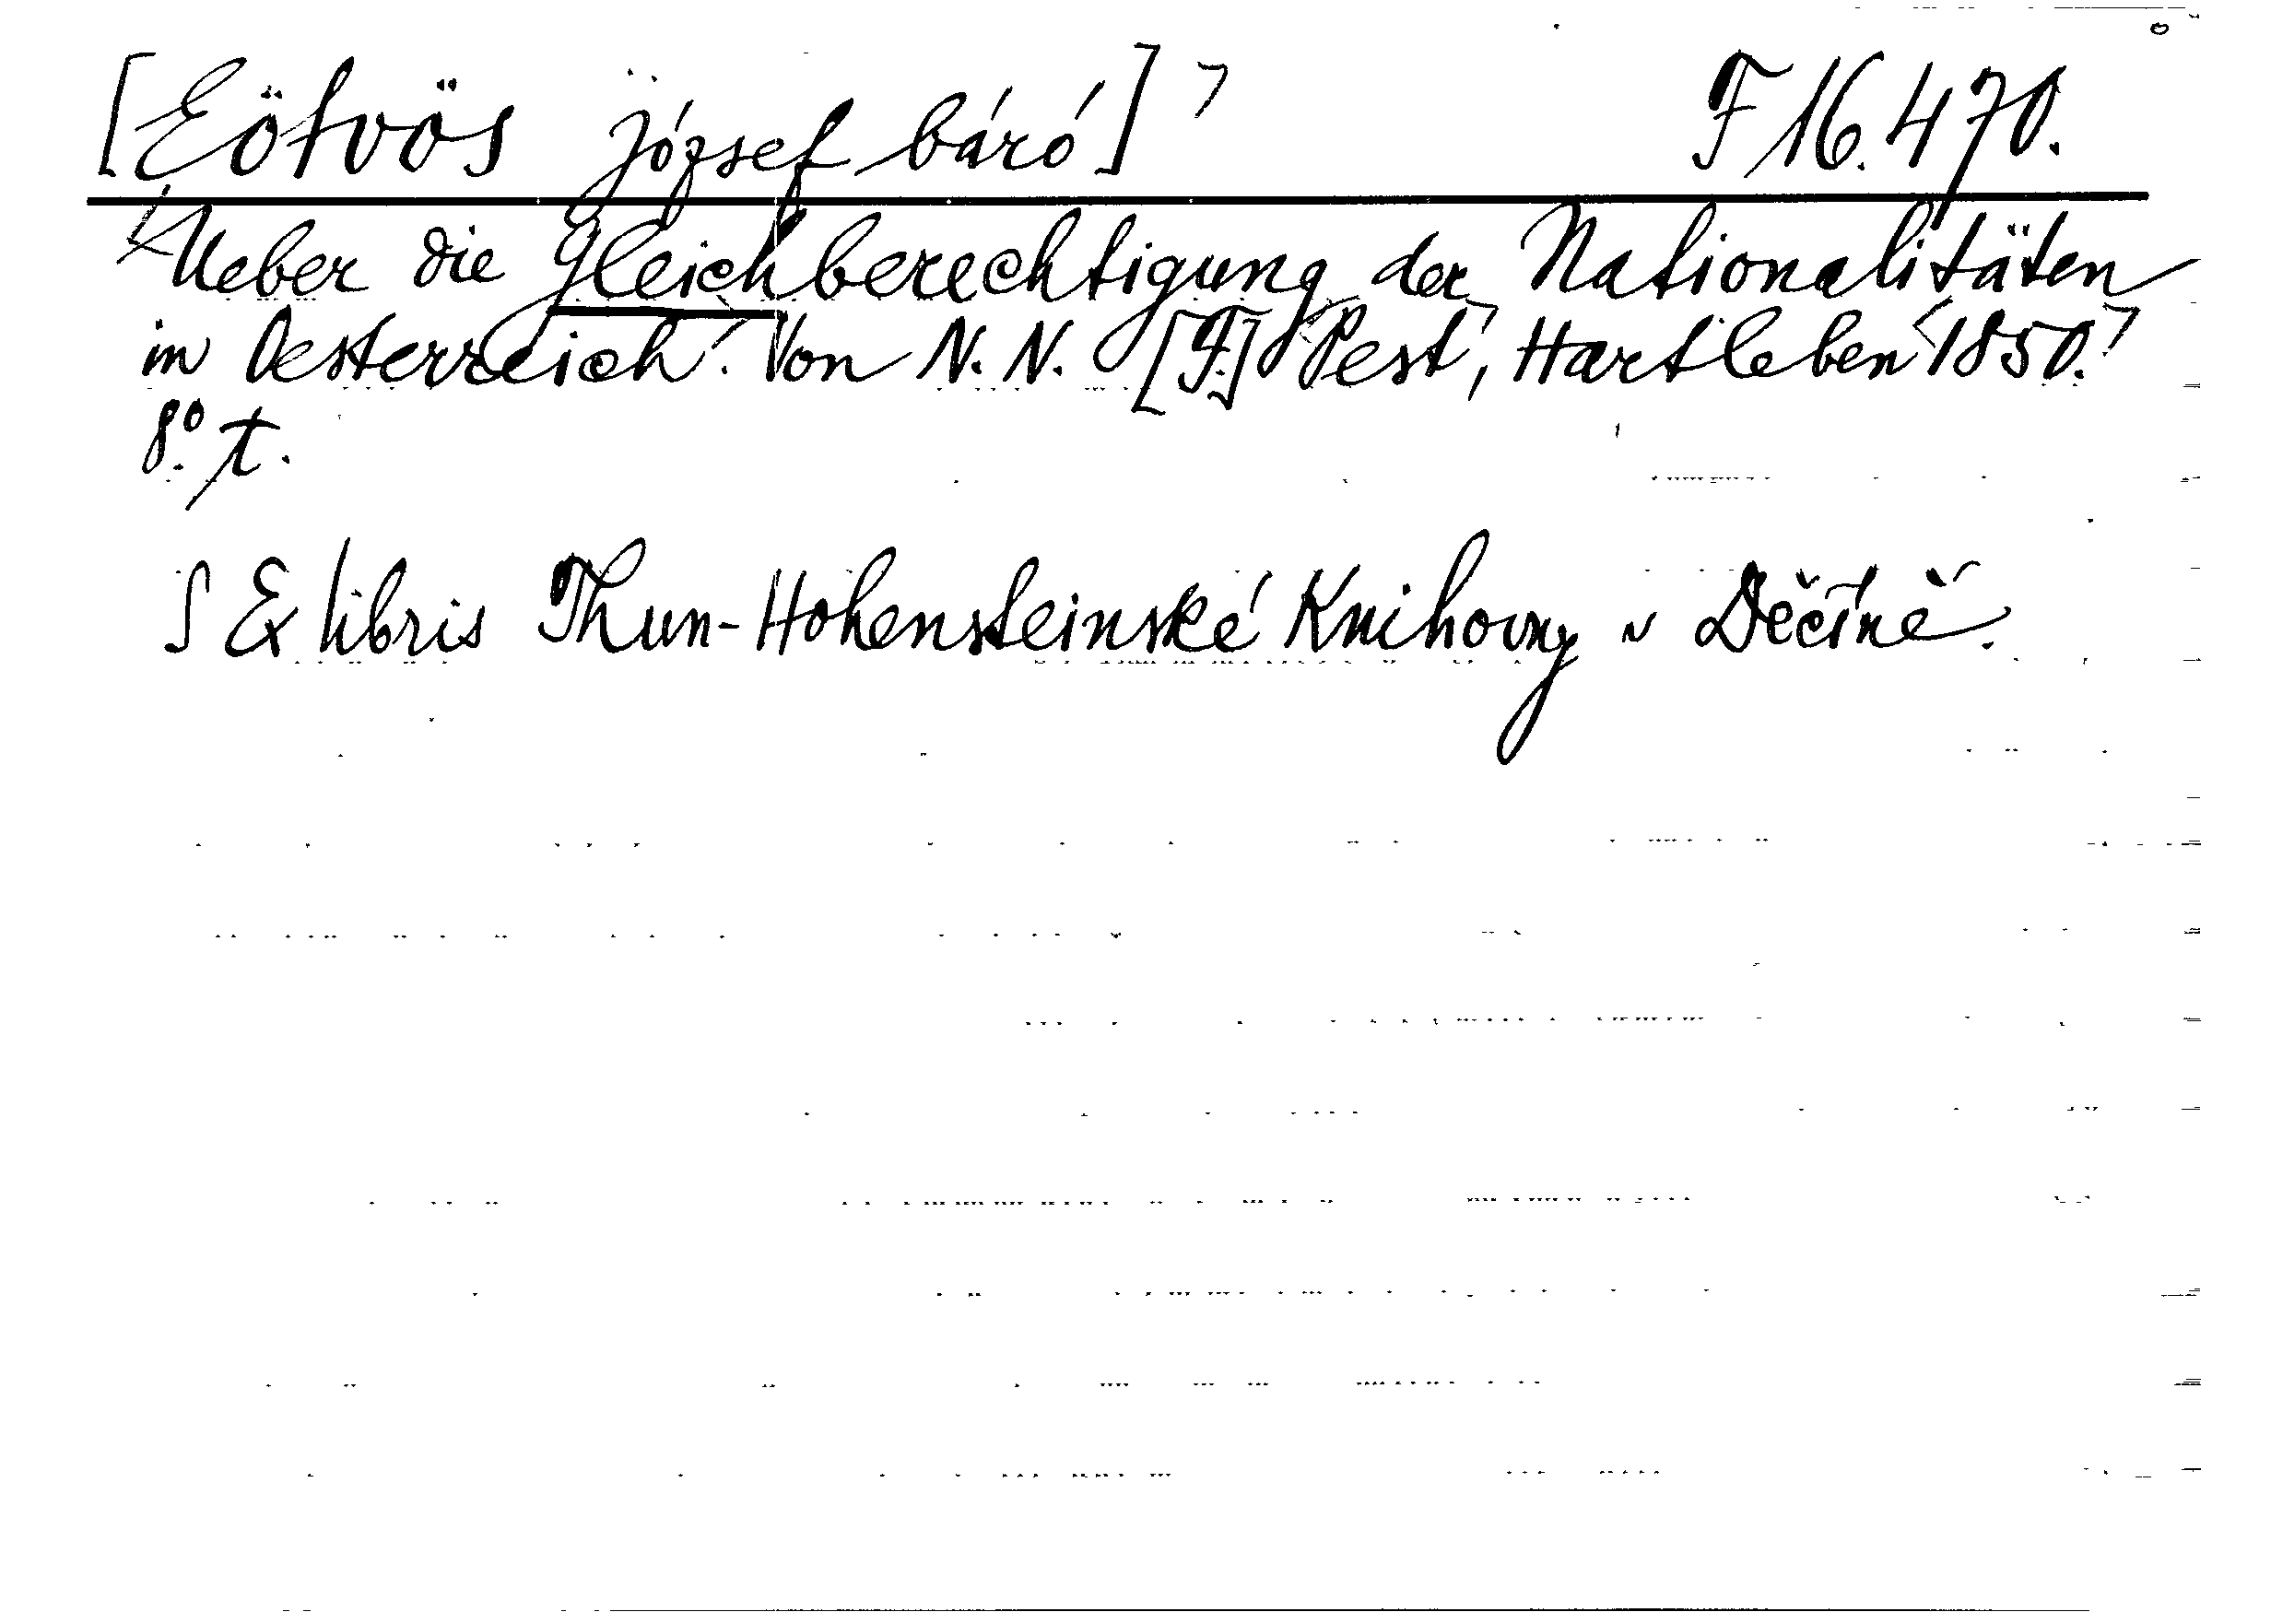 [Eötvös József báró] F 16.470.
Ueber die Gleichberechtigung der Nationalitäten
in Oesterreich. Von N. N. [F.] Pest, Hartleben 1850.
8° t.
S Ex libris Thun-Hohensteinské Knihovny v Děčíně.